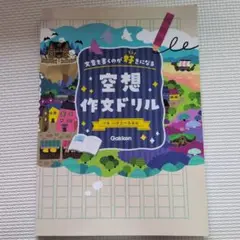 文章を書くのが好きになる
空想
作文ドリル
Gakken